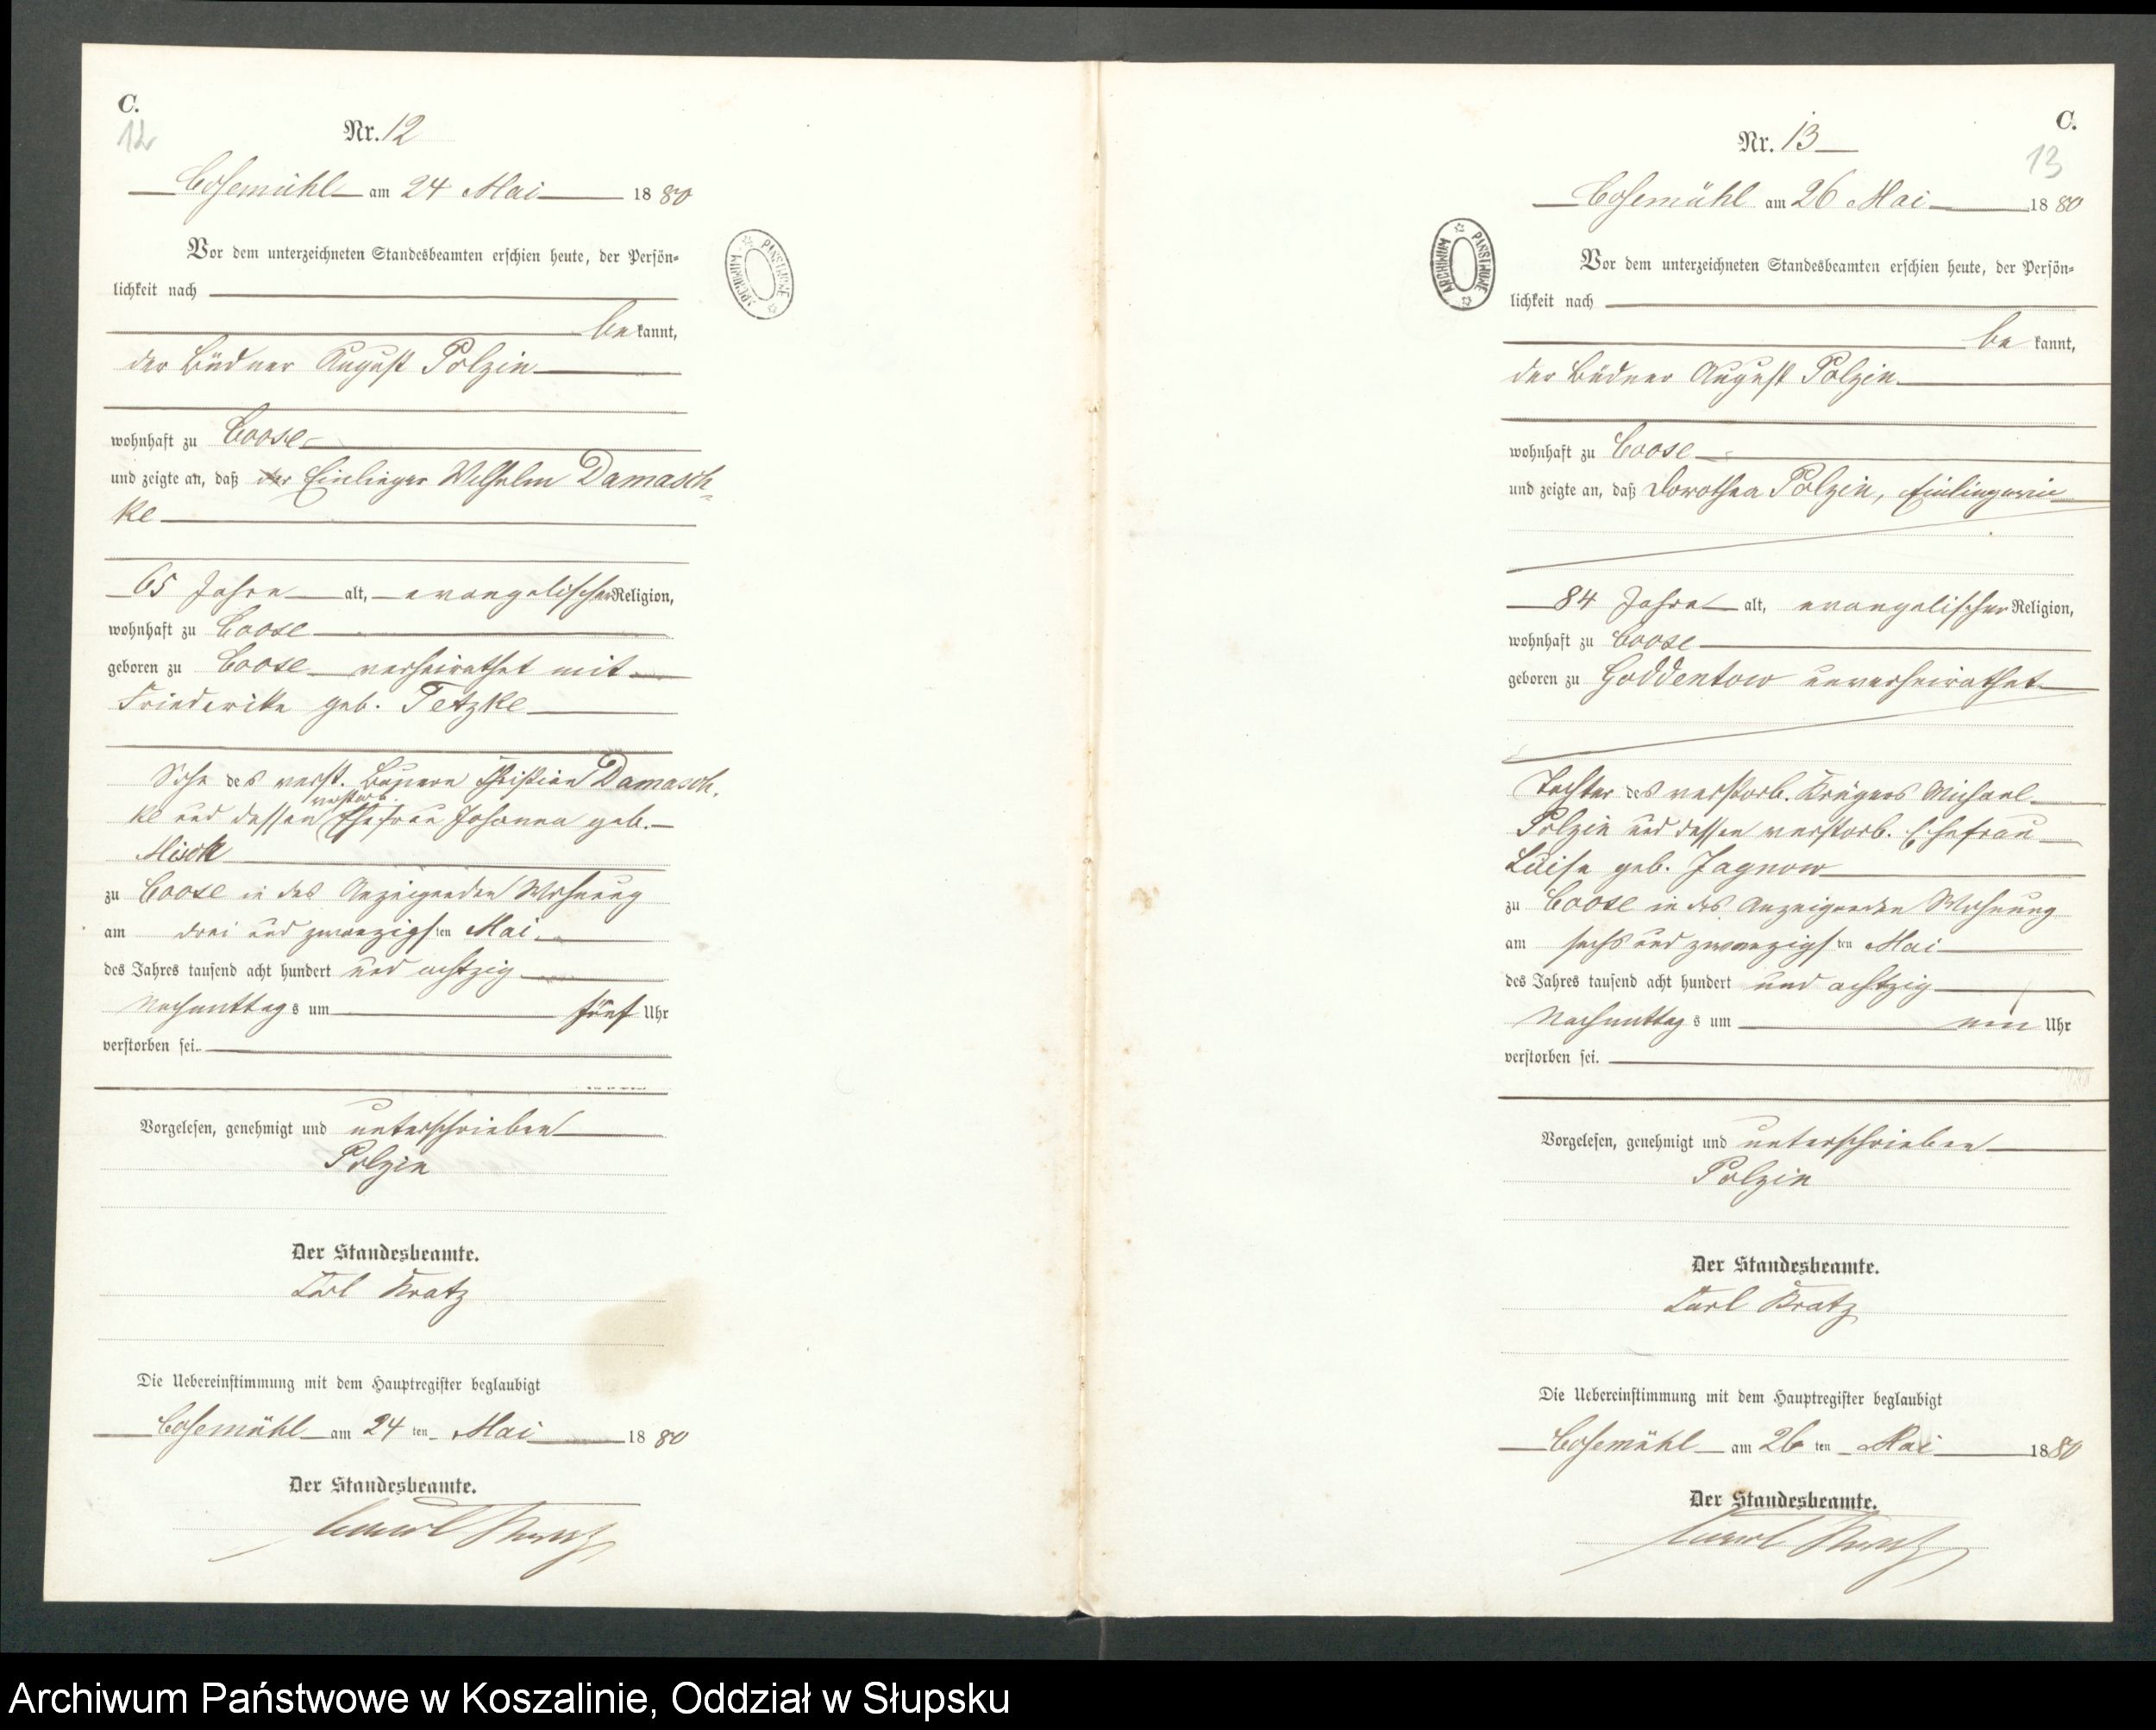 C.
12
Nr. 12
Cosemühl am 24 Mai 1880
Vor dem unterzeichneten Standesbeamten erschien heute, der Persön=
lichkeit nach
be kannt,
der Büdner August Polzin
wohnhaft zu Coose
und zeigte an, daß der Einlieger Wilhelm Damasch=
ke
65 Jahre alt, evangelischer Religion,
wohnhaft zu Coose
geboren zu Coose verheirathet mit
Friederike geb. Tetzke
Sohn des verst. Bauern Christian Damasch.
verstorb.
ke und dessen Ehefrau Johanna geb.
Misch
zu Coose in des Anzeigenden Wohnung
am drei und zwanzigsten Mai
des Jahres tausend acht hundert und achtzig
Nachmittags um fünf Uhr
verstorben sei.
Vorgelesen, genehmigt und unterschrieben
Polzin
Der Standesbeamte.
Carl Kratz
Die Uebereinstimmung mit dem Hauptregister beglaubigt
Cosemühl am 24 ten Mai 1880
Der Standesbeamte.
Carl Kratz
ARCHIWUM PAŃSTWOWE
C.
13
Nr. 13
Cosemühl am 26 Mai 1880
Vor dem unterzeichneten Standesbeamten erschien heute, der Persön=
lichkeit nach
be kannt,
der Büdner August Polzin
wohnhaft zu Coose
und zeigte an, daß Dorothea Polzin, Einliegerin
84 Jahre alt, evangelischer Religion,
wohnhaft zu Coose
geboren zu Goddentow unverheirathet
Tochter des verstorb. Krügers Michael
Polzin und dessen verstorb. Ehefrau
Luise geb. Jagnow
zu Coose in des Anzeigenden Wohnung
am sechs und zwanzigsten Mai
des Jahres tausend acht hundert und achtzig
Nachmittags um ein Uhr
verstorben sei.
Vorgelesen, genehmigt und unterschrieben
Polzin
Der Standesbeamte.
Carl Kratz
Die Uebereinstimmung mit dem Hauptregister beglaubigt
Cosemühl am 26 ten Mai 1880
Der Standesbeamte.
Carl Kratz
ARCHIWUM PAŃSTWOWE
Archiwum Państwowe w Koszalinie, Oddział w Słupsku